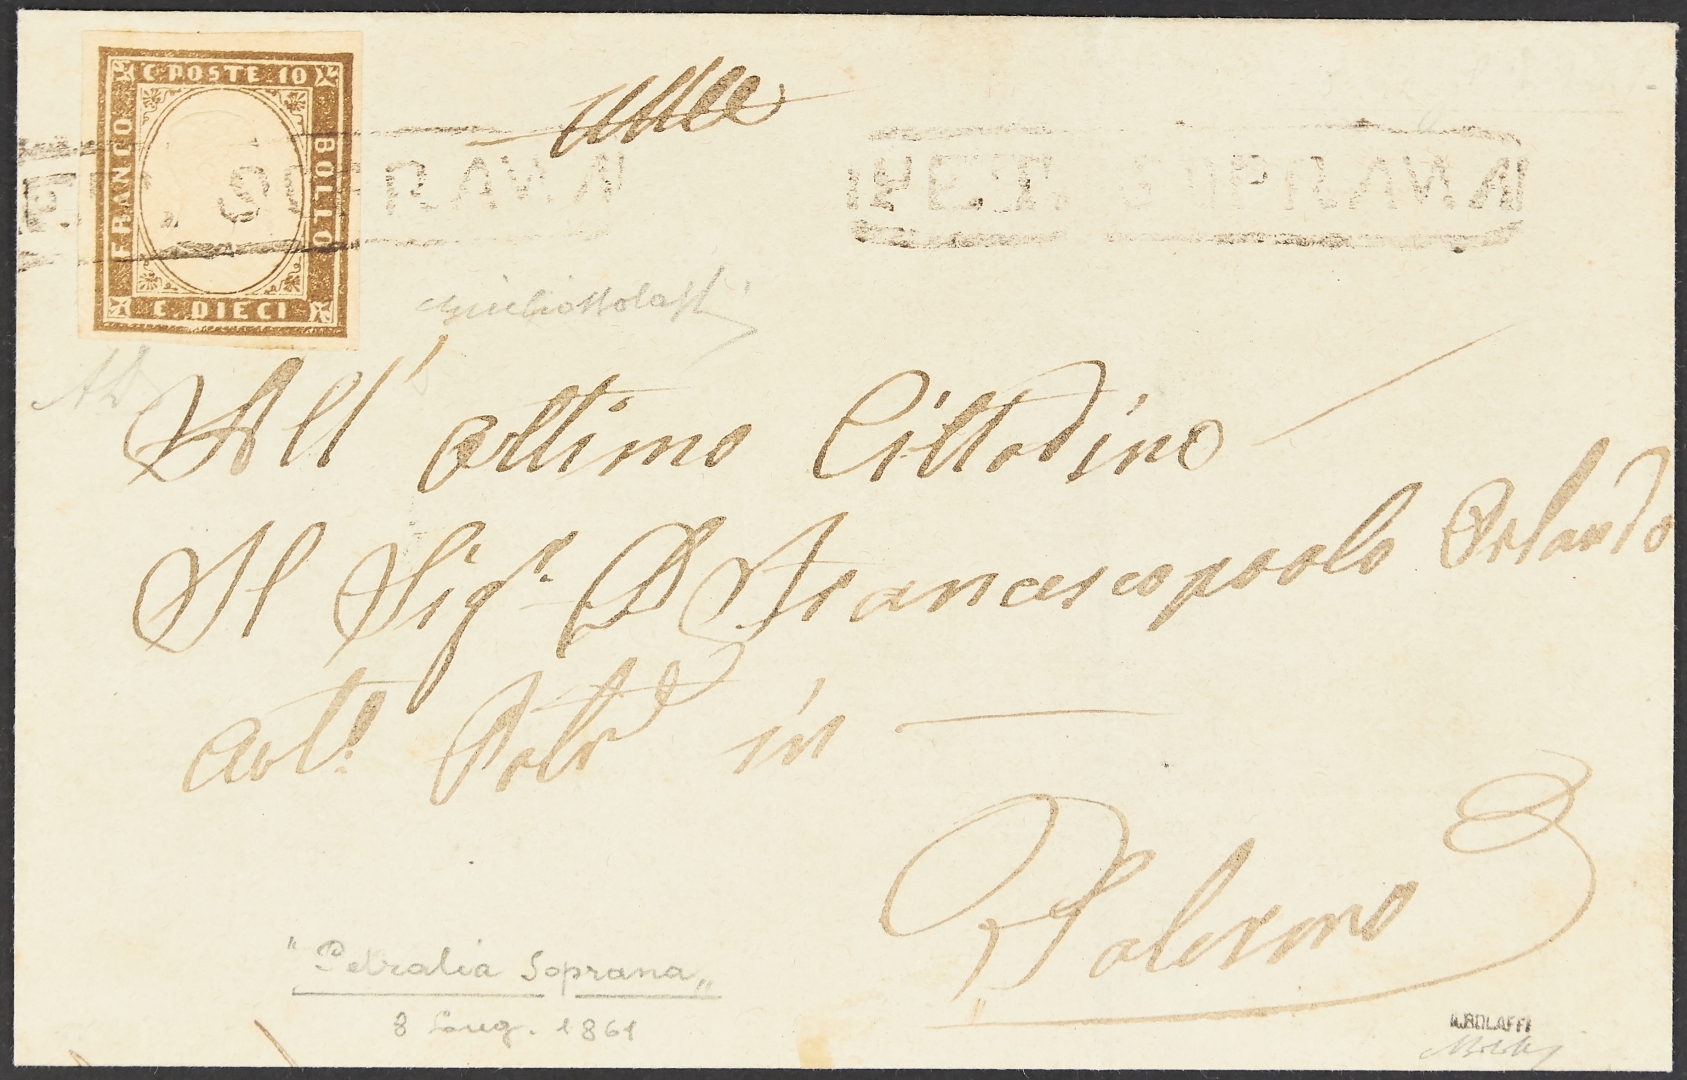 C. POSTE 10
FRANCO
BOLLO
C. DIECI
PET. SOPRANA
All' ottimo Cittadino
Il Sigr. D. Francescopaolo Orlando
in
Palermo
"Petralia Soprana"
8 Lug. 1861
A. BOLAFFI